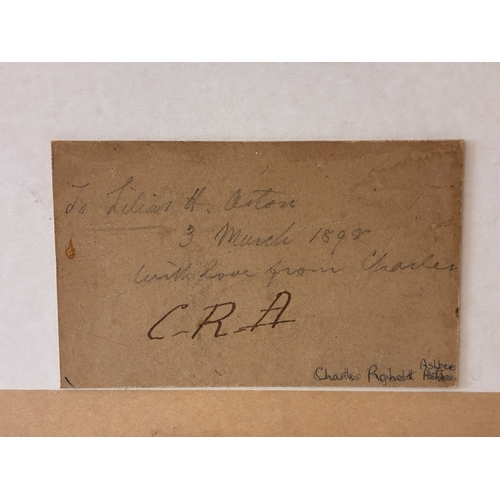 To Lilian H. Acton
3 March 1898
with love from Charles
C-R-A
Ashbee
Charles Robert Ashbee